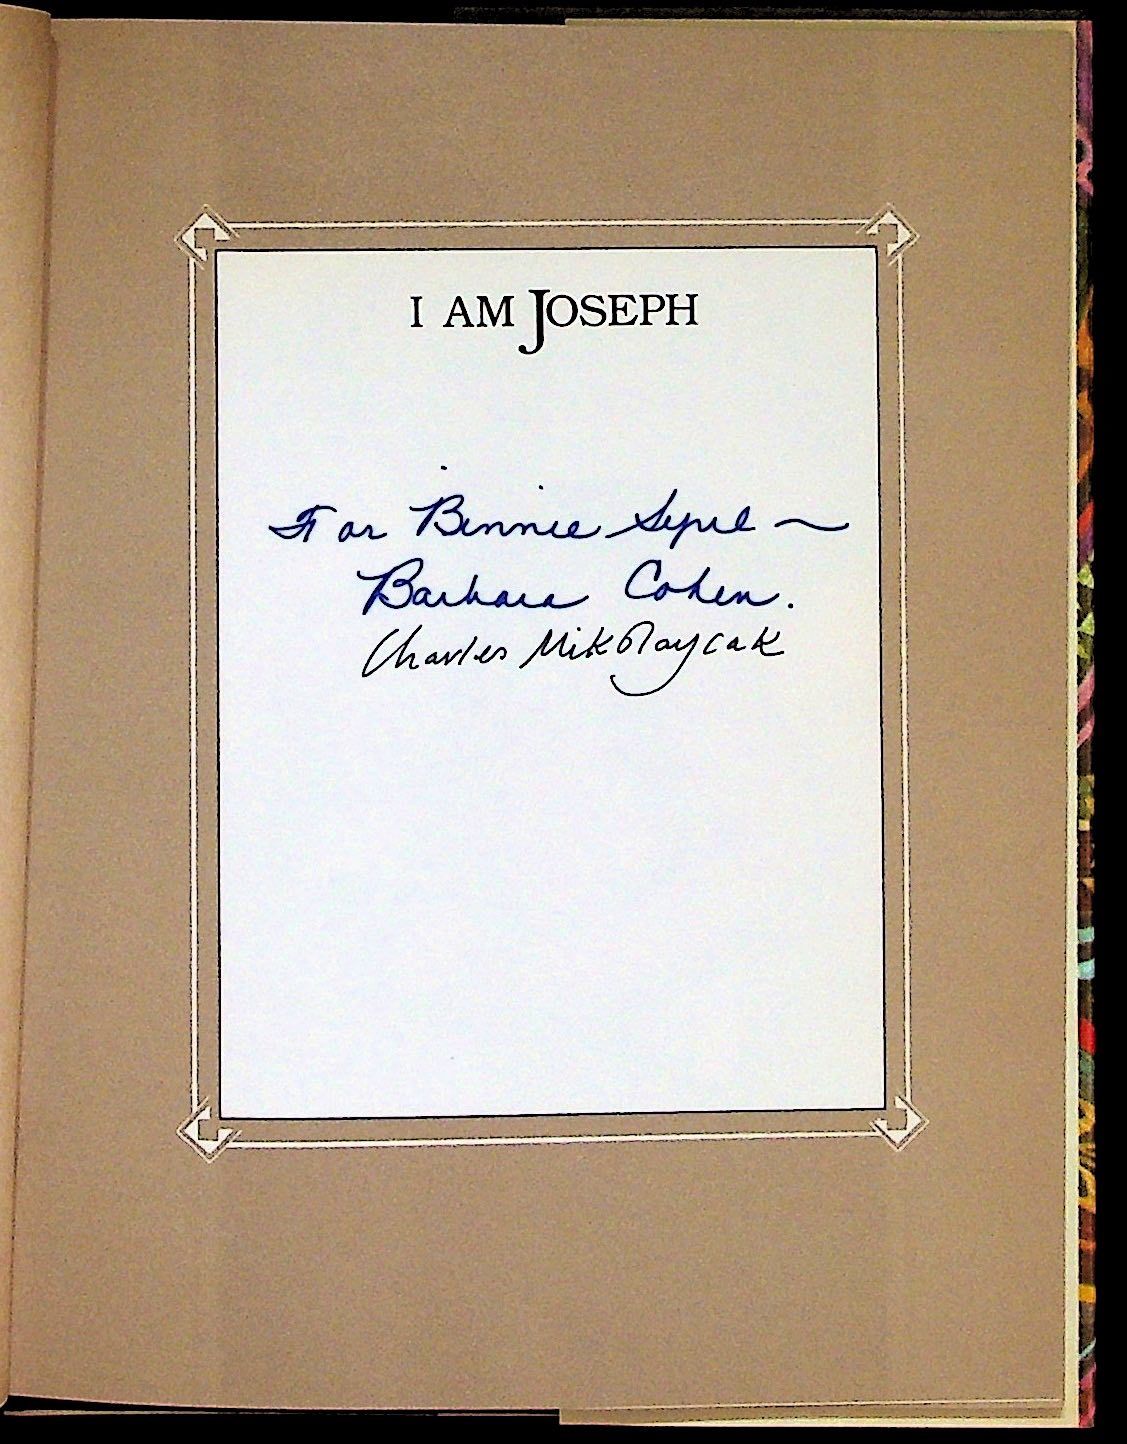 I AM JOSEPH
For Binnie
Barbara Cohen.
Charles Mikolaycak